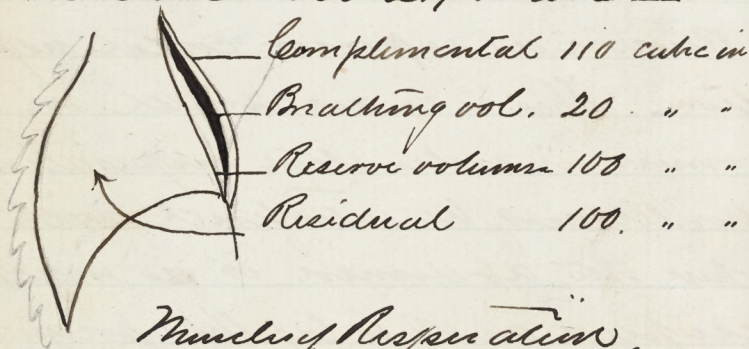 Complimental 110 cubic in
Breathing vol. 20 " "
Reserve volume 100 " "
Residual 100. " "
Muscles of Respiration.